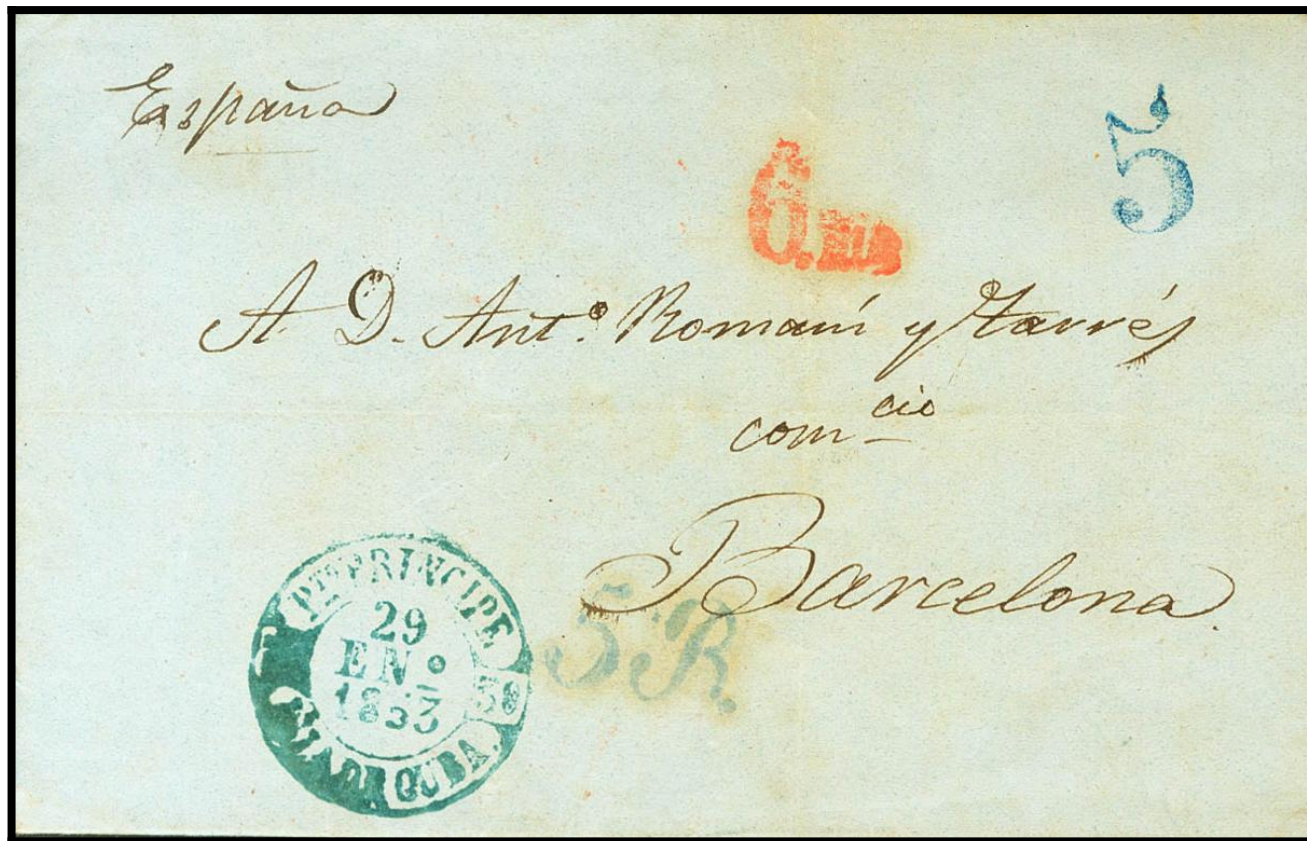 España
5
6. RLS
A D. Ant.º Romaní y Tarrés
com cio
Barcelona.
PTO PRINCIPE
29
EN.º
1853
CUBA.
5 R.